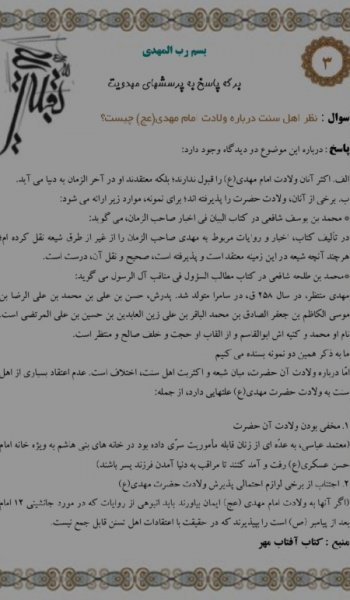 بسم رب المهدی
برگه پاسخ به پرسشهای مهدویت
۳
سوال : نظر اهل سنت درباره ولادت امام مهدی(عج) چیست؟
پاسخ : درباره این موضوع دو دیدگاه وجود دارد:
الف. اکثر آنان ولادت امام مهدی(ع) را قبول ندارند؛ بلکه معتقدند او در آخر الزمان به دنیا می آید.
ب. برخی از آنان، ولادت حضرت را پذیرفته اند؛ برای نمونه، موارد زیر ارائه می شود:
* محمد بن یوسف شافعی در کتاب البیان فی اخبار صاحب الزمان، می گوید:
در تألیف کتاب، اخبار و روایات مربوط به مهدی صاحب الزمان را از غیر از طرق شیعه نقل کرده ام؛
هرچند آنچه شیعه در این زمینه معتقد است و پذیرفته است، صحیح و نقل آن، درست است.
*محمد بن طلحه شافعی در کتاب مطالب السؤول فی مناقب آل الرسول می گوید:
مهدی منتظر، در سال ۲۵۸ ق، در سامرا متولد شد. پدرش، حسن بن علی بن محمد بن علی الرضا بن
موسی الکاظم بن جعفر الصادق بن محمد الباقر بن علی زین العابدین بن حسین بن علی المرتضی است.
نام او محمد و کنیه اش ابوالقاسم و از القاب او حجت و خلف صالح و منتظر است.
ما به ذکر همین دو نمونه بسنده می کنیم
امّا درباره ولادت آن حضرت، میان شیعه و اکثریت اهل سنت، اختلاف است. عدم اعتقاد بسیاری از اهل
سنت به ولادت حضرت مهدی(ع) علتهایی دارد، از جمله:
۱. مخفی بودن ولادت آن حضرت
(معتمد عباسی، به عدّه ای از زنان قابله مأموریت سرّی داده بود در خانه های بنی هاشم به ویژه خانه امام
حسن عسکری(ع) رفت و آمد کنند تا مراقب به دنیا آمدن فرزند پسر باشند)
۲. اجتناب از برخی لوازم احتمالی پذیرش ولادت حضرت مهدی(ع)
(اگر آنها به ولادت امام مهدی (عج) ایمان بیاورند باید انبوهی از روایات که در مورد جانشینی ۱۲ امام
بعد از پیامبر (ص) است را بپذیرند که در حقیقت با اعتقادات اهل تسنن قابل جمع نیست.
منبع : کتاب آفتاب مهر